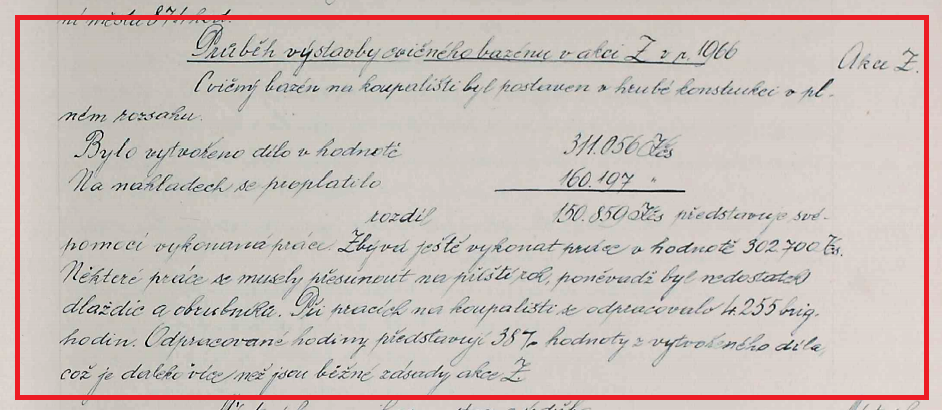 ní městu 874 hod.
Průběh výstavby cvičného bazénu v akci Z v r. 1966
Akce Z.
Cvičný bazén na koupališti byl postaven v hrubé konstrukci v pl-
ném rozsahu.
Bylo vytvořeno dílo v hodnotě 311.056 Kčs
Na nákladech se proplatilo 160.197 "
rozdíl 150.859 Kčs představuje své-
pomocí vykonaná práce. Zbývá ještě vykonat práce v hodnotě 302.700 Kčs.
Některé práce se musely přesunout na příští rok, poněvadž byl nedostatek
dlaždic a obrubníků. Při pracích na koupališti se odpracovalo 4.255 brig.
hodin. Odpracované hodiny představují 38% hodnoty z vytvořeného díla,
což je daleko více než jsou běžné zásady akce Z.